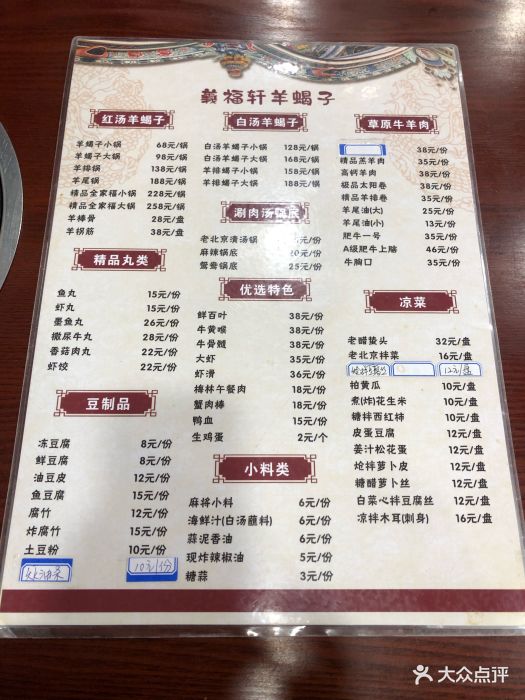 義福轩羊蝎子
红汤羊蝎子
羊蝎子小锅 68元/锅
羊蝎子大锅 98元/锅
羊排锅 138元/锅
羊尾锅 188元/锅
精品全家福小锅 228元/锅
精品全家福大锅 258元/锅
羊棒骨 28元/盘
羊拐筋 38元/盘
精品丸类
鱼丸 15元/份
虾丸 15元/份
墨鱼丸 26元/份
撒尿牛丸 28元/份
香菇肉丸 22元/份
虾饺 22元/份
豆制品
冻豆腐 8元/份
鲜豆腐 8元/份
油豆皮 12元/份
鱼豆腐 15元/份
腐竹 12元/份
炸腐竹 15元/份
土豆粉 10元/份
10元/份
白汤羊蝎子
白汤羊蝎子小锅 128元/锅
白汤羊蝎子大锅 168元/锅
羊排羊蝎子小锅 158元/锅
羊排羊蝎子大锅 188元/锅
涮肉汤锅底
老北京清汤锅 元/份
麻辣锅底 20元/份
鸳鸯锅底 25元/份
优选特色
鲜百叶 38元/份
牛黄喉 38元/份
牛骨髓 38元/份
大虾 35元/份
虾滑 36元/份
梅林午餐肉 18元/份
蟹肉棒 18元/份
鸭血 15元/份
生鸡蛋 2元/个
小料类
麻将小料 6元/份
海鲜汁(白汤蘸料) 6元/份
蒜泥香油 6元/份
现炸辣椒油 5元/份
糖蒜 3元/份
草原牛羊肉
38元/份
精品羔羊肉 35元/份
高钙羊肉 38元/份
极品太阳卷 38元/份
精品羊排卷 35元/份
羊尾油(大) 25元/份
羊尾油(小) 13元/份
肥牛一号 35元/份
A级肥牛上脑 46元/份
牛胸口 35元/份
凉菜
老醋蛰头 32元/盘
老北京拌菜 16元/盘
12元/盘
拍黄瓜 10元/盘
煮(炸)花生米 10元/盘
糖拌西红柿 10元/盘
皮蛋豆腐 12元/盘
姜汁松花蛋 12元/盘
炝拌萝卜皮 12元/盘
糖醋萝卜丝 12元/盘
白菜心拌豆腐丝 12元/盘
凉拌木耳(刺身) 16元/盘
大众点评